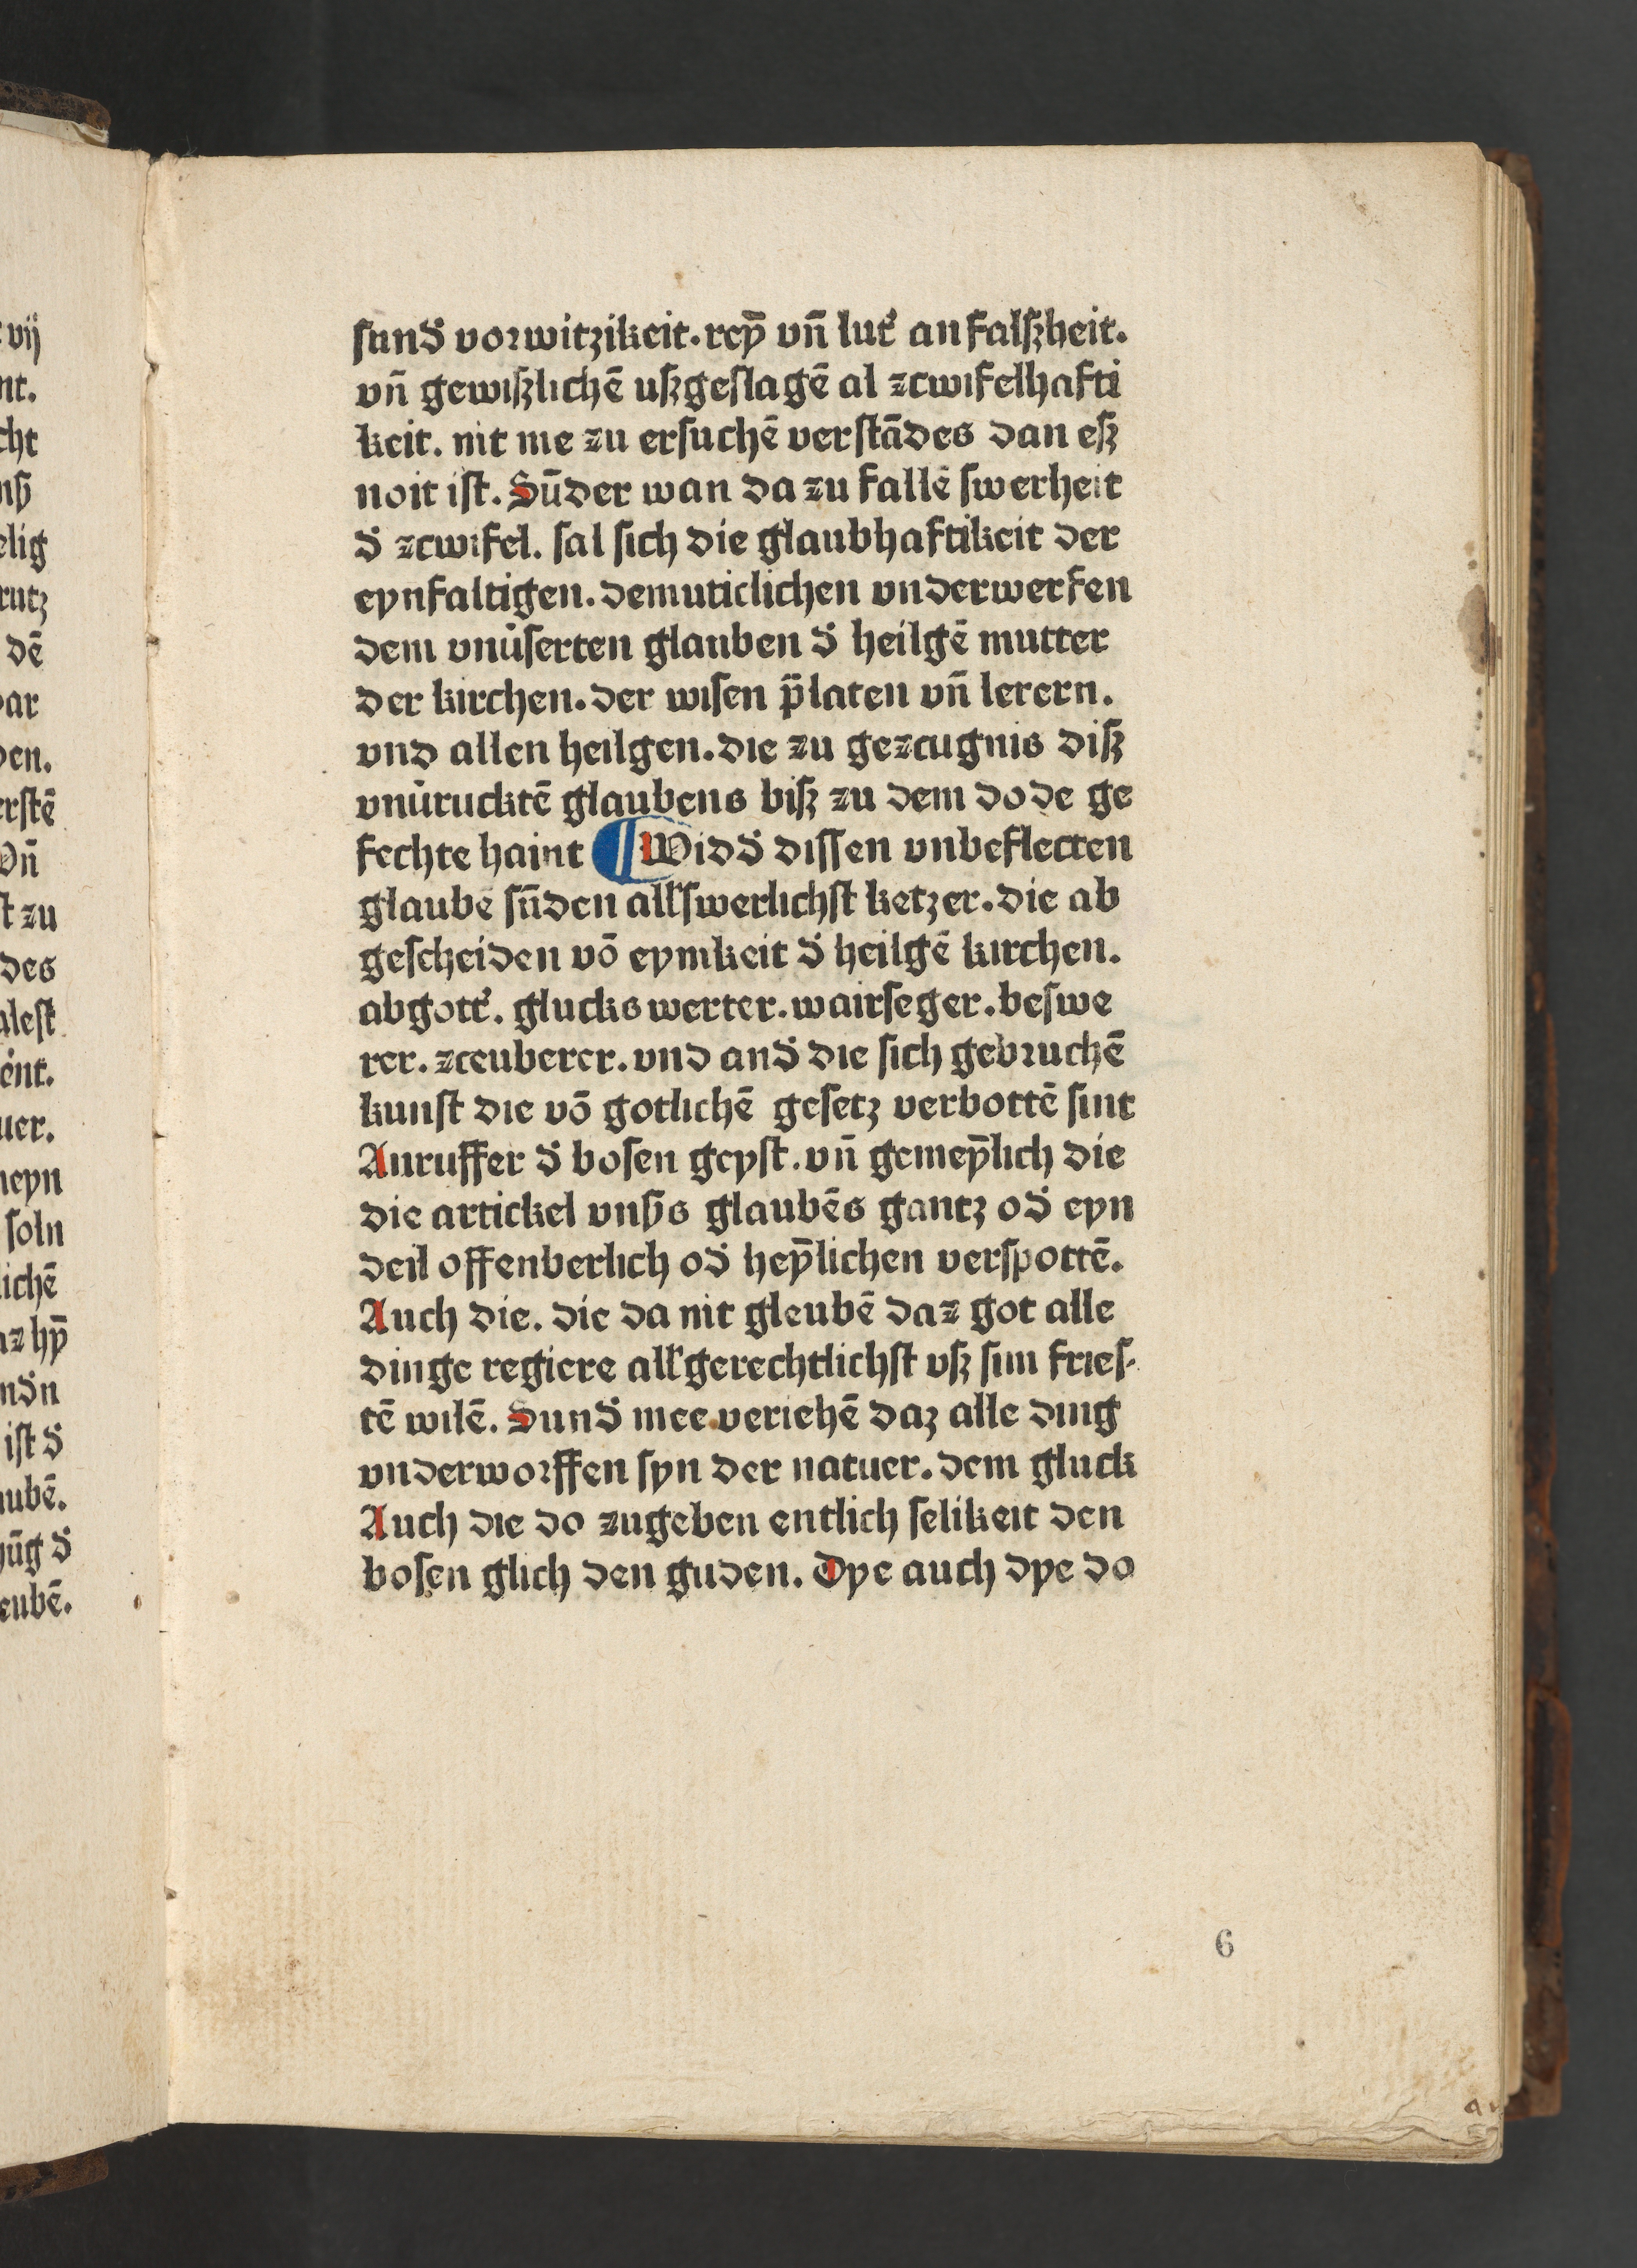 sund' vorwitzikeit. rey̅ vn̅ lut' an falßheit.
vn̅ gewißlichē ußgeslagē al zcwifelhafti
keit. nit me zu ersuchē verstādes dan eß
noit ist. Sūder wan da zu fallē swerheit
d' zcwifel. sal sich die glaubhaftikeit der
eynfaltigen. demuticlichen vnderwerfen
dem vnu'serten glauben d' heilgē mutter
der kirchen. der wisen p̄laten vn̅ lerern.
vnd allen heilgen. die zu gezcugnis diß
vnu'rucktē glaubens biß zu dem dode ge
fechte haint ¶ Widd' dissen vnbeflecten
glaubē sūden all'swerlichst ketzer. die ab
gescheiden vō eynikeit d' heilgē kirchen.
abgott'. glucks werter. wairseger. beswe
rer. zceuberer. vnd and' die sich gebruchē
kunst die vō gotlichē gesetz verbottē sint
Anruffer d' bosen geyst. vn̅ gemey̅lich die
die artickel vnß's glaubēs gantz od' eyn
deil offenberlich od' hey̅lichen verspottē.
Auch die. die da nit gleubē daz got alle
dinge regiere all'gerechtlichst vß sim fries-
tē wilē. Sund' mee veriehē daz alle ding
vnderworffen syn der natuer. dem gluck
Auch die do zugeben entlich selikeit den
bosen glich den guden. Dye auch dye do
6